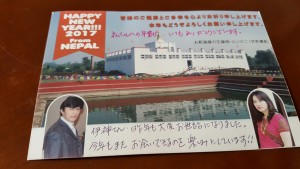 HAPPY
NEW
YEAR!!!
2017
From
NEPAL
皆様のご健康とご多幸を心よりお祈り申し上げます。
本年もどうぞよろしくお願い申し上げます。
いつもありがとうございます。
昨年も大変お世話になりました。
今年もまたお会いできるのを楽しみにしています!!